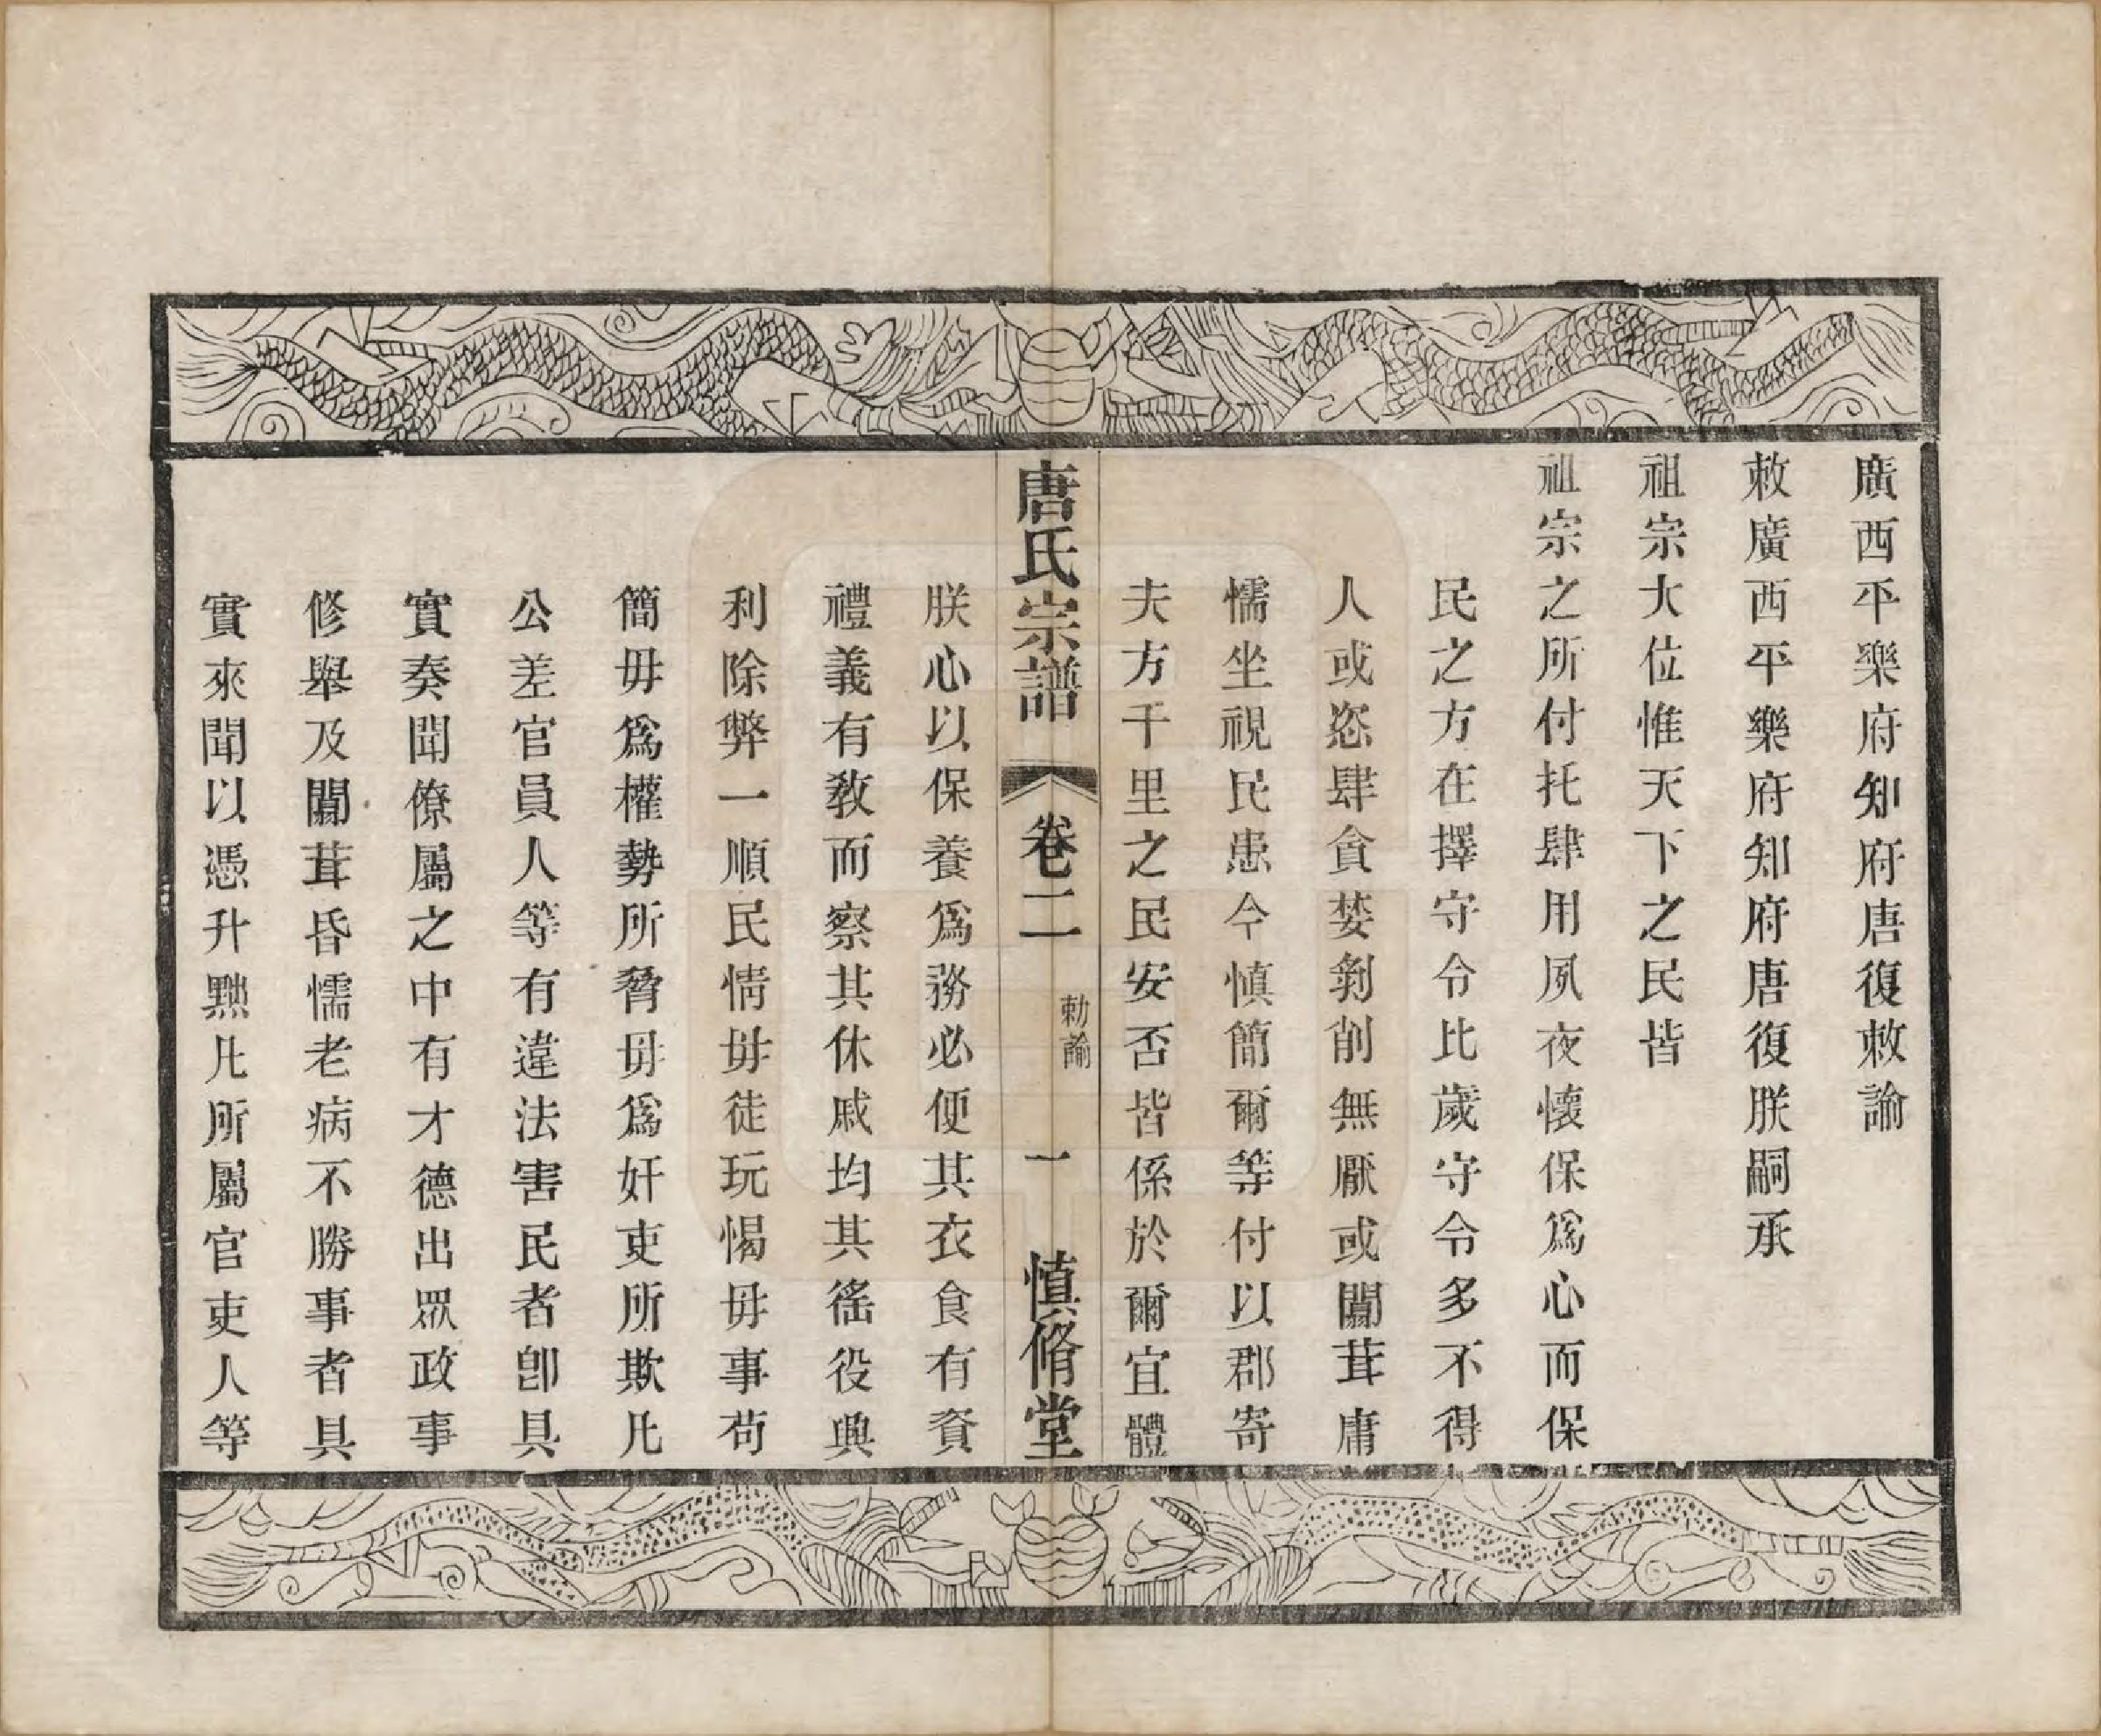 廣西平樂府知府唐復敕諭
敕廣西平樂府知府唐復朕嗣承
祖宗大位惟天下之民皆
祖宗之所付托肆用夙夜懷保爲心而保
民之方在擇守令比歲守令多不得
人或恣肆貪婪剝削無厭或闒茸庸
懦坐視民患今慎簡爾等付以郡寄
夫方千里之民安否皆係於爾宜體
唐氏宗譜
卷二
勅諭
一
慎脩堂
朕心以保養爲務必便其衣食有資
禮義有敎而察其休戚均其徭役興
利除弊一順民情毋徒玩愒毋事苟
簡毋爲權勢所脅毋爲奸吏所欺凡
公差官員人等有違法害民者卽具
實奏聞僚屬之中有才德出眾政事
修舉及闒茸昏懦老病不勝事者具
實來聞以憑升黜凡所屬官吏人等